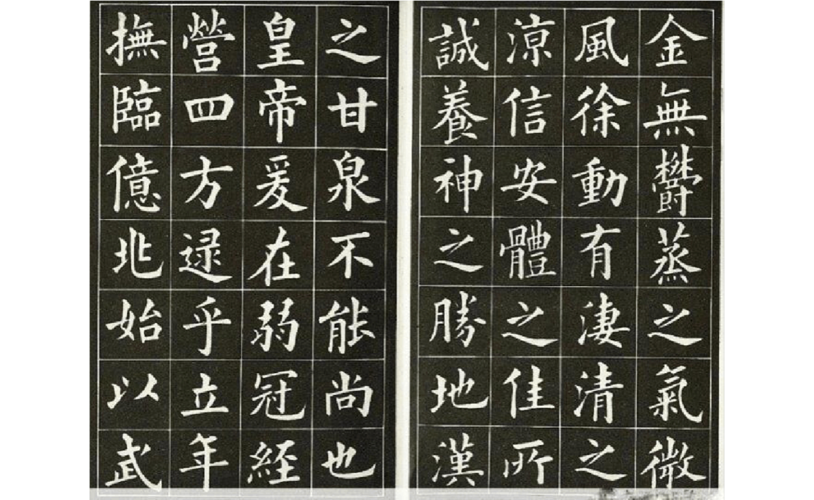 金無鬱蒸之氣微
風徐動有淒清之
涼信安體之佳所
誠養神之勝地漢
之甘泉不能尚也
皇帝爰在弱冠經
營四方逯乎立年
撫臨億兆始以武